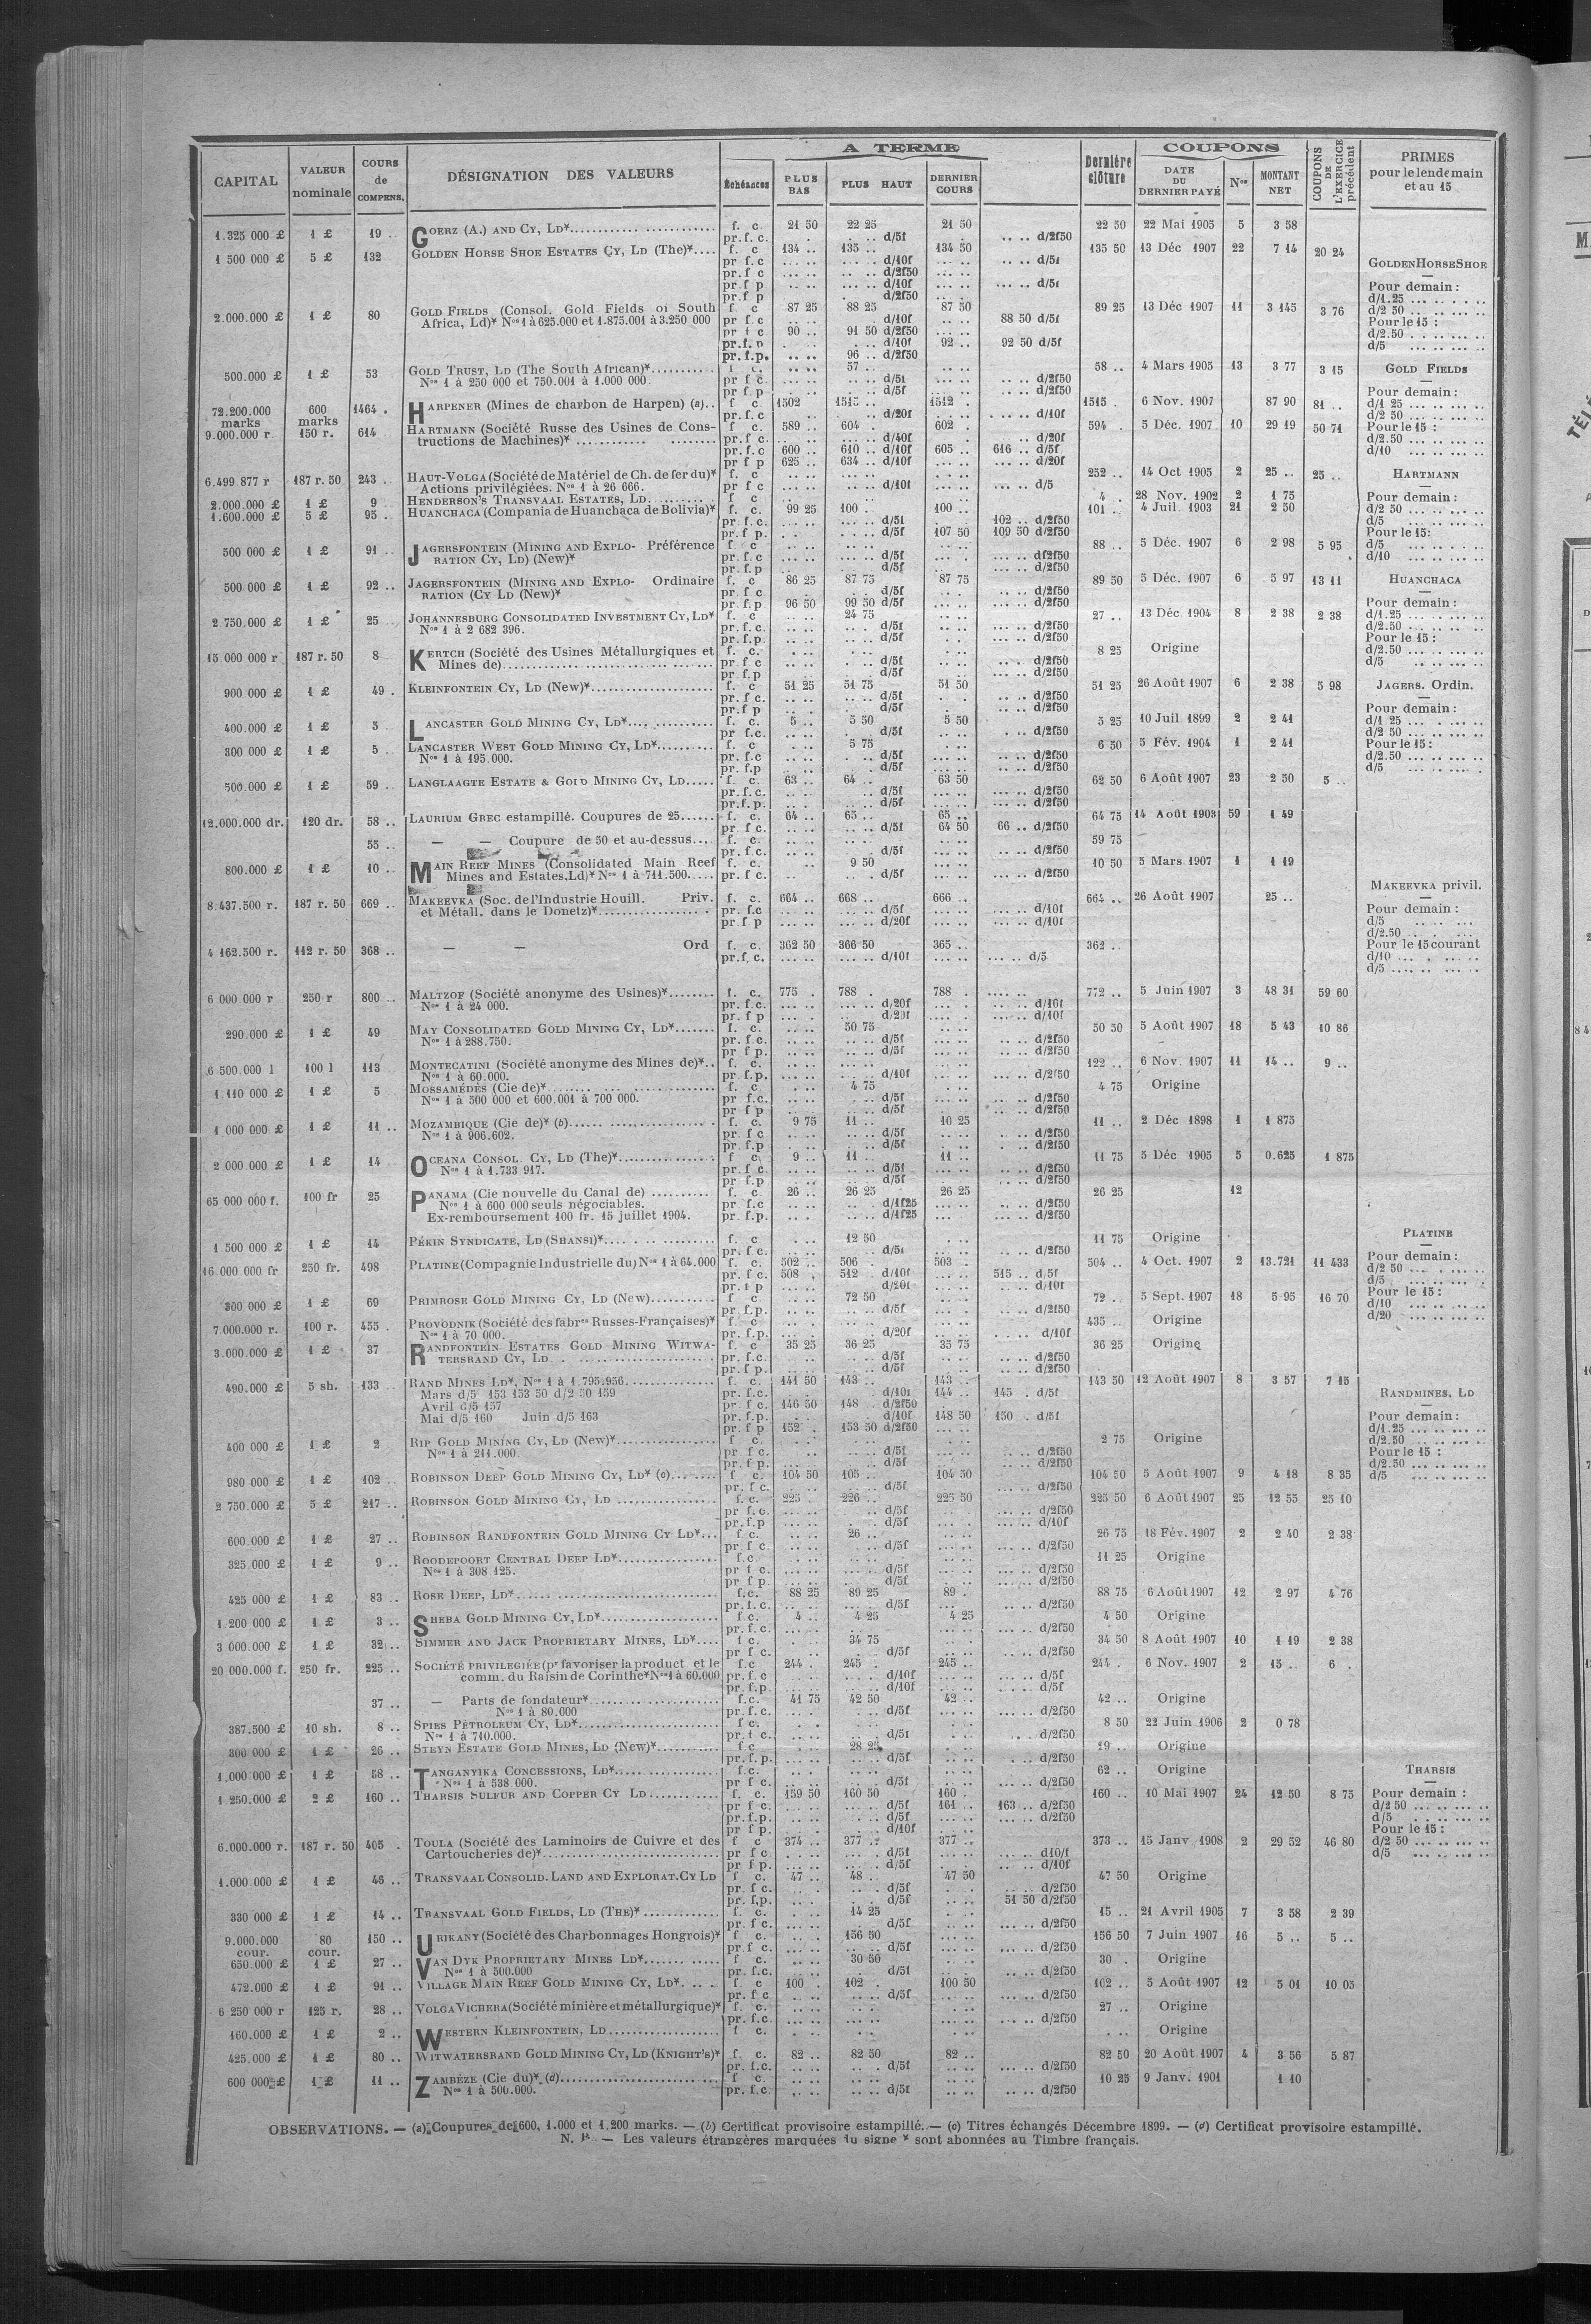 CAPITAL | VALEUR nominale | COURS de COMPENS. | DÉSIGNATION DES VALEURS | A TERME | Dernière clôture | COUPONS | COUPONS DE L'EXERCICE précédent | PRIMES pour le lendemain et au 15
Échéances | PLUS BAS | PLUS HAUT | DERNIER COURS | DATE DU DERNIER PAYÉ | Nos | MONTANT NET
1.325 000 £ | 1 £ | 19 .. | GOERZ (A.) AND CY, LD* | f. c. | 21 50 | 22 25 | 21 50 | 22 50 | 22 Mai 1905 | 5 | 3 58
pr. f. c. | d/5f | d/2f50
1 500 000 £ | 5 £ | 132 | GOLDEN HORSE SHOE ESTATES CY, LD (The)* | f. c | 134 .. | 135 .. | 134 50 | 135 50 | 13 Déc 1907 | 22 | 7 14 | 20 24
pr f. c | d/10f | d/5f | GOLDEN HORSE SHOE
pr. f c | d/2f50
pr. f p | d/10f | d/5f | Pour demain :
pr. f p | d/2f50 | d/1.25
2.000.000 £ | 1 £ | 80 | GOLD FIELDS (Consol. Gold Fields of South | f c | 87 25 | 88 25 | 87 50 | 89 25 | 13 Déc 1907 | 11 | 3 145 | 3 76 | d/2 50
Africa, Ld)* Nos 1 à 625.000 et 1.875.001 à 3.250 000 | pr f. c | d/10f | 88 50 d/5f | Pour le 15 :
pr f c | 90 .. | 91 50 d/2f50 | d/2.50
pr. f. p | d/10f | 92 .. | 92 50 d/5f | d/5
pr. f. p. | 96 .. d/2f50
500.000 £ | 1 £ | 53 | GOLD TRUST, LD (The South African)* | f c. | 57 .. | 58 .. | 4 Mars 1905 | 13 | 3 77 | 3 15 | GOLD FIELDS
Nos 1 à 250 000 et 750.001 à 1.000 000. | pr f c. | d/5f | d/2f50
pr f p | d/5f | d/2f50 | Pour demain :
72.200.000 marks | 600 marks | 1464 . | HARPENER (Mines de charbon de Harpen) (a) | f c | 1502 | 1515 .. | 1512 . | 1515 . | 6 Nov. 1907 | 87 90 | 81 .. | d/1 25
pr. f. c | d/20f | d/10f | d/2 50
9.000.000 r | 150 r. | 614 | HARTMANN (Société Russe des Usines de Cons- | f c. | 589 .. | 604 . | 602 . | 594 . | 5 Déc. 1907 | 10 | 29 19 | 50 71 | Pour le 15 :
tructions de Machines)* | pr. f c. | d/40f | d/20f | d/2.50
pr. f. c | 600 .. | 610 .. d/10f | 605 .. | 616 .. d/5f | d/10
pr f p | 625 .. | 634 .. d/10f | d/20f
6.499.877 r | 187 r. 50 | 243 .. | HAUT-VOLGA (Société de Matériel de Ch. de fer du)* | f. c | 252 .. | 14 Oct 1905 | 2 | 25 .. | 25 .. | HARTMANN
Actions privilégiées. Nos 1 à 26 666. | pr f c | d/10f | d/5
2.000.000 £ | 1 £ | 9 .. | HENDERSON'S TRANSVAAL ESTATES, LD. | f c | 4 . | 28 Nov. 1902 | 2 | 1 75 | Pour demain :
1.600.000 £ | 5 £ | 95 .. | HUANCHACA (Compania de Huanchaca de Bolivia)* | f. c. | 99 25 | 100 . | 100 .. | 101 . | 4 Juil. 1903 | 21 | 2 50 | d/2 50
pr. f. c. | d/5f | 102 .. d/2f50 | d/5
pr. f p. | d/5f | 107 50 | 109 50 d/2f50 | Pour le 15 :
500 000 £ | 1 £ | 91 .. | JAGERSFONTEIN (MINING AND EXPLO- Préférence | f c | 88 .. | 5 Déc. 1907 | 6 | 2 98 | 5 95 | d/5
RATION CY, LD) (New)* | pr. f. c | d/5f | d/2f50 | d/10
pr. f. p | d/5f | d/2f50
500 000 £ | 1 £ | 92 .. | JAGERSFONTEIN (MINING AND EXPLO- Ordinaire | f. c | 86 25 | 87 75 | 87 75 | 89 50 | 5 Déc. 1907 | 6 | 5 97 | 13 11 | HUANCHACA
RATION (CY LD (New)* | pr. f c | d/5f | d/2f50
pr. f. p. | 96 50 | 99 50 d/5f | d/2f50 | Pour demain :
2.750.000 £ | 1 £ | 25 | JOHANNESBURG CONSOLIDATED INVESTMENT CY, LD* | f. c | 24 75 | 27 .. | 13 Déc. 1904 | 8 | 2 38 | 2 38 | d/1.25
Nos 1 à 2 682 396. | pr. f. c. | d/5f | d/2f50 | d/2.50
pr. f. p. | d/5f | d/2f50 | Pour le 15 :
15 000 000 r | 187 r. 50 | 8 | KERTCH (Société des Usines Métallurgiques et | f. c. | 8 25 | Origine | d/2.50
Mines de) | pr f c | d/5f | d/2f50 | d/5
pr. f. p | d/5f | d/2f50
900 000 £ | 1 £ | 49 . | KLEINFONTEIN CY, LD (New)* | f. c | 51 25 | 51 75 | 51 50 | 51 25 | 26 Août 1907 | 6 | 2 38 | 5 98 | JAGERS. Ordin.
pr. f c. | d/5f | d/2f50
pr. f p | d/5f | d/2f50 | Pour demain :
400.000 £ | 1 £ | 5 | LANCASTER GOLD MINING CY, LD* | f. c. | 5 .. | 5 50 | 5 50 | 5 25 | 10 Juil 1899 | 2 | 2 41 | d/1 25
pr f. c. | d/5f | d/2f50 | d/2 50
300 000 £ | 1 £ | 5 .. | LANCASTER WEST GOLD MINING CY, LD* | f. c | 5 75 | 6 50 | 5 Fév. 1904 | 1 | 2 41 | Pour le 15 :
Nos 1 à 195.000. | pr. f. c | d/5f | d/2f50 | d/2.50
pr. f. p | d/5f | d/2f50 | d/5
500.000 £ | 1 £ | 59 .. | LANGLAAGTE ESTATE & GOLD MINING CY, LD | f c. | 63 .. | 64 .. | 63 50 | 62 50 | 6 Août 1907 | 23 | 2 50 | 5 ..
pr. f. c. | d/5f | d/2f50
pr. f. p. | d/5f | d/2f50
12.000.000 dr. | 120 dr. | 58 .. | LAURIUM GREC estampillé. Coupures de 25 | f. c. | 64 .. | 65 .. | 65 .. | 64 75 | 14 Août 1903 | 59 | 1 49
pr. f c. | d/5f | 64 50 | 66 .. d/2f50
55 .. | — — Coupure de 50 et au-dessus | f. c. | 59 75
pr. f. c. | d/5f | d/2f50
800.000 £ | 1 £ | 10 .. | MAIN REEF MINES (Consolidated Main Reef | f. c. | 9 50 | 10 50 | 5 Mars 1907 | 1 | 1 19
Mines and Estates, Ld)* Nos 1 à 711.500 | pr. f c. | d/5f | d/2f50
MAKEEVKA privil.
8.437.500 r. | 187 r. 50 | 669 .. | MAKEEVKA (Soc. de l'Industrie Houill. Priv. | f. c. | 664 .. | 668 .. | 666 .. | 664 .. | 26 Août 1907 | 25 ..
et Métall. dans le Donetz)* | pr. f. c | d/5f | d/10f | Pour demain :
pr. f p | d/20f | d/10f | d/5
d/2.50
4 162.500 r. | 112 r. 50 | 368 .. | — — Ord | f. c. | 362 50 | 366 50 | 365 .. | 362 .. | Pour le 15 courant
pr. f. c. | d/10f | d/5 | d/10
d/5
6 000.000 r | 250 r | 800 .. | MALTZOF (Société anonyme des Usines)* | f. c. | 775 . | 788 . | 788 . | 772 .. | 5 Juin 1907 | 3 | 48 31 | 59 60
Nos 1 à 24 000. | pr. f. c. | d/20f | d/10f
pr. f p | d/20f | d/10f
290.000 £ | 1 £ | 49 | MAY CONSOLIDATED GOLD MINING CY, LD* | f. c. | 50 75 | 50 50 | 5 Août 1907 | 18 | 5 43 | 10 86
Nos 1 à 288.750. | pr. f. c. | d/5f | d/2f50
pr f p. | d/5f | d/2f50
6 500.000 l | 100 l | 113 | MONTECATINI (Société anonyme des Mines de)* | f. c. | 122 .. | 6 Nov. 1907 | 11 | 14 .. | 9 ..
Nos 1 à 60.000. | pr. f. p. | d/10f | d/2f50
1 110 000 £ | 1 £ | 5 | MOSSAMÉDÈS (Cie de)* | f. c | 4 75 | 4 75 | Origine
Nos 1 à 500 000 et 600.001 à 700 000. | pr f. c. | d/5f | d/2f50
pr f p | d/5f | d/2f50
1 000 000 £ | 1 £ | 11 .. | MOZAMBIQUE (Cie de)* (b) | f. c. | 9 75 | 11 .. | 10 25 | 11 .. | 2 Déc 1898 | 1 | 1 875
Nos 1 à 906.602. | pr. f c | d/5f | d/2f50
pr. f. p | d/5f | d/2f50
2 000.000 £ | 1 £ | 14 | OCEANA CONSOL. CY, LD (The)* | f c | 9 .. | 11 .. | 11 .. | 11 75 | 5 Déc 1905 | 5 | 0.625 | 1 875
Nos 1 à 1.733 917. | pr. f c. | d/5f | d/2f50
pr. f p | d/5f | d/2f50
65 000 000 f. | 100 fr | 25 | PANAMA (Cie nouvelle du Canal de) | f. c. | 26 .. | 26 25 | 26 25 | 26 25 | 12
Nos 1 à 600 000 seuls négociables. | pr f. c | d/1f25 | d/2f50
Ex-remboursement 100 fr. 15 juillet 1904. | pr. f. p. | d/1f25 | d/2f50
PLATINE
1 500 000 £ | 1 £ | 14 | PÉKIN SYNDICATE, LD (SHANSI)* | f. c | 12 50 | 11 75 | Origine
pr. f. c. | d/5f | d/2f50 | Pour demain :
16 000 000 fr | 250 fr. | 498 | PLATINE (Compagnie Industrielle du) Nos 1 à 64.000 | f. c. | 502 .. | 506 . | 503 . | 504 .. | 4 Oct. 1907 | 2 | 13.721 | 11 433 | d/2 50
pr. f c. | 508 . | 512 . d/10f | 515 .. d/5f | d/5
pr. f p | d/20f | d/10f | Pour le 15 :
300 000 £ | 1 £ | 69 | PRIMROSE GOLD MINING CY, LD (New) | f c | 72 50 | 72 .. | 5 Sept. 1907 | 18 | 5 95 | 16 70 | d/10
pr. f. p. | d/5f | d/2f50 | d/20
7.000.000 r. | 100 r. | 455 . | PROVODNIK (Société des fabres Russes-Françaises)* | f c | 435 .. | Origine
Nos 1 à 70 000. | pr. f. p. | d/20f | d/10f
3.000.000 £ | 1 £ | 37 | RANDFONTEIN ESTATES GOLD MINING WITWA- | f. c | 35 25 | 36 25 | 35 75 | 36 25 | Origine
TERSRAND CY, LD | pr. f. c. | d/5f | d/2f50
pr. f p. | d/5f | d/2f50
490.000 £ | 5 sh. | 133 .. | RAND MINES LD*, Nos 1 à 1.795.956 | f. c. | 141 50 | 143 .. | 143 .. | 143 50 | 12 Août 1907 | 8 | 3 57 | 7 15
Mars d/5 153 153 50 d/2 50 159 | pr. f. c. | d/10f | 144 .. | 145 . d/5f | RANDMINES, LD
Avril d/5 157 | pr. f c. | 146 50 | 148 . d/2f50
Mai d/5 160 Juin d/5 163 | pr. f. p. | d/10f | 148 50 | 150 . d/5f | Pour demain :
pr. f p | 152 . | 153 50 d/2f50 | d/1.25
400 000 £ | 1 £ | 2 | RIP GOLD MINING CY, LD (New)* | f c. | 2 75 | Origine | d/2.50
Nos 1 à 211.000. | pr f c. | d/5f | d/2f50 | Pour le 15 :
pr. f p. | d/5f | d/2f50 | d/2.50
980 000 £ | 1 £ | 102 .. | ROBINSON DEEP GOLD MINING CY, LD* (c) | f c. | 104 50 | 105 .. | 104 50 | 104 50 | 5 Août 1907 | 9 | 4 18 | 8 35 | d/5
pr. f c. | d/5f | d/2f50
2 750.000 £ | 5 £ | 217 .. | ROBINSON GOLD MINING CY, LD | f. c. | 225 . | 226 .. | 225 50 | 225 50 | 6 Août 1907 | 25 | 12 55 | 25 10
pr f. c. | d/5f | d/2f50
pr. f. p | d/5f | d/10f
600.000 £ | 1 £ | 27 .. | ROBINSON RANDFONTEIN GOLD MINING CY LD* | f c. | 26 .. | 26 75 | 18 Fév. 1907 | 2 | 2 40 | 2 38
pr f c. | d/5f | d/2f50
325 000 £ | 1 £ | 9 .. | ROODEPOORT CENTRAL DEEP LD* | f. c | 11 25 | Origine
Nos 1 à 308 125. | pr f c. | d/5f | d/2f50
pr f p. | d/5f | d/2f50
425 000 £ | 1 £ | 83 .. | ROSE DEEP, LD* | f. c. | 88 25 | 89 25 | 89 . | 88 75 | 6 Août 1907 | 12 | 2 97 | 4 76
pr. f. c. | d/5f | d/2f50
1.200 000 £ | 1 £ | 3 .. | SHEBA GOLD MINING CY, LD* | f. c. | 4 .. | 4 25 | 4 25 | 4 50 | Origine
pr. f. c. | d/2f50
3 000.000 £ | 1 £ | 32 .. | SIMMER AND JACK PROPRIETARY MINES, LD* | f c. | 34 75 | 34 50 | 8 Août 1907 | 10 | 1 19 | 2 38
pr f c. | d/5f | d/2f50
20 000.000 f. | 250 fr. | 225 .. | SOCIÉTÉ PRIVILEGIÉE (pr favoriser la product et le | f. c | 244 . | 245 . | 245 .. | 244 . | 6 Nov. 1907 | 2 | 15 .. | 6 .
comm. du Raisin de Corinthe* Nos 1 à 60.000 | pr. f. c | d/10f | d/5f
pr. f. p. | d/10f | d/5f
37 .. | — Parts de fondateur* | f. c. | 41 75 | 42 50 | 42 .. | 42 .. | Origine
Nos 1 à 80.000 | pr. f. c. | d/5f | d/2f50
387.500 £ | 10 sh. | 8 .. | SPIES PÉTROLEUM CY, LD* | f c. | 8 50 | 22 Juin 1906 | 2 | 0 78
Nos 1 à 710.000. | pr. f c | d/5f | d/2f50
300 000 £ | 1 £ | 26 .. | STEYN ESTATE GOLD MINES, LD (New)* | f. c | 28 25 | 29 .. | Origine
pr. f. p. | d/5f | d/2f50
1.000 000 £ | 1 £ | 58 .. | TANGANYIKA CONCESSIONS, LD* | f. c. | 62 .. | Origine | THARSIS
Nos 1 à 538 000. | pr f c. | d/5f | d/2f50
1 250.000 £ | 2 £ | 160 .. | THARSIS SULFUR AND COPPER CY LD | f. c. | 159 50 | 160 50 | 160 . | 160 .. | 10 Mai 1907 | 24 | 12 50 | 8 75 | Pour demain :
pr f c. | d/5f | 161 . | 163 .. d/2f50 | d/2 50
pr. f. p. | d/5f | d/2f50 | d/5
pr f p. | d/10f | Pour le 15 :
6.000.000 r. | 187 r. 50 | 405 . | TOULA (Société des Laminoirs de Cuivre et des | f c | 374 .. | 377 .. | 377 .. | 373 .. | 15 Janv 1908 | 2 | 29 52 | 46 80 | d/2 50
Cartoucheries de)* | pr f c | d/5f | d10/f | d/5
pr f p. | d/5f | d/10f
1.000.000 £ | 1 £ | 46 .. | TRANSVAAL CONSOLID. LAND AND EXPLORAT. CY LD | f c. | 47 .. | 48 . | 47 50 | 47 50 | Origine
pr. f c. | d/5f | d/2f50
pr. f. p. | d/5f | 51 50 d/2f50
330 000 £ | 1 £ | 14 .. | TRANSVAAL GOLD FIELDS, LD (THE)* | f. c. | 14 25 | 15 .. | 21 Avril 1905 | 7 | 3 58 | 2 39
pr. f c. | d/5f | d/2f50
9.000.000 cour. | 80 cour. | 150 .. | URIKANY (Société des Charbonnages Hongrois)* | f c. | 156 50 | 156 50 | 7 Juin 1907 | 16 | 5 .. | 5 ..
pr. f c. | d/5f | d/2f50
650.000 £ | 1 £ | 27 .. | VAN DYK PROPRIETARY MINES LD* | f c. | 30 50 | 30 . | Origine
Nos 1 à 500.000 | pr. f. c. | d/5f | d/2f50
472.000 £ | 1 £ | 91 .. | VILLAGE MAIN REEF GOLD MINING CY, LD* | f c | 100 . | 102 . | 100 50 | 102 .. | 5 Août 1907 | 12 | 5 01 | 10 05
pr. f c | d/5f | d/2f50
6 250 000 r | 125 r. | 28 .. | VOLGA VICHERA (Société minière et métallurgique)* | f c. | 27 .. | Origine
pr. f. c. | d/2f50
160.000 £ | 1 £ | 2 .. | WESTERN KLEINFONTEIN, LD | f c. | Origine
425.000 £ | 1 £ | 80 .. | WITWATERSRAND GOLD MINING CY, LD (KNIGHT'S)* | f. c. | 82 .. | 82 50 | 82 .. | 82 50 | 20 Août 1907 | 4 | 3 56 | 5 87
pr. f. c. | d/5f | d/2f50
600 000 £ | 1 £ | 11 .. | ZAMBÈZE (Cie du)* (d) | f c. | 10 25 | 9 Janv. 1901 | 1 10
Nos 1 à 500.000. | pr. f. c | d/5f | d/2f50
OBSERVATIONS. — (a) Coupures de 600, 1.000 et 1.200 marks. — (b) Certificat provisoire estampillé. — (c) Titres échangés Décembre 1899. — (d) Certificat provisoire estampillé.
N. B. — Les valeurs étrangères marquées du signe * sont abonnées au Timbre français.